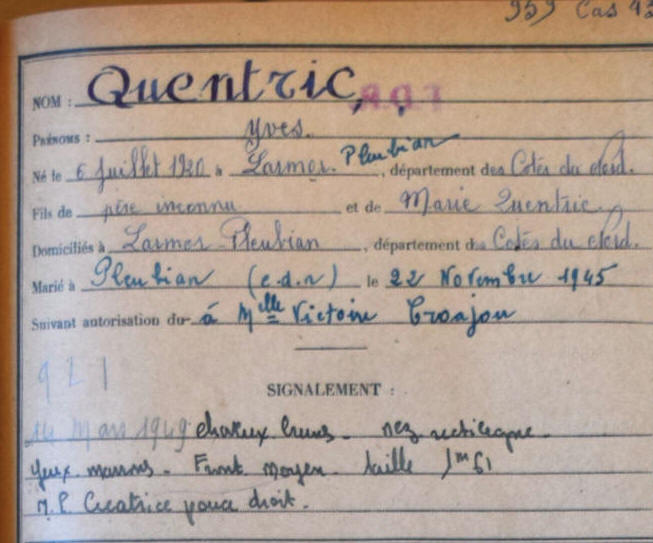 959 Cas 43
NOM : Quentric
PRÉNOMS : Yves.
Né le 6 Juillet 1920 à Larmor. Pleubian, département des Côtes du Nord.
Fils de père inconnu et de Marie Quentric.
Domiciliés à Larmor-Pleubian, département des Côtes du Nord.
Marié à Pleubian (c.d.n) le 22 Novembre 1945
Suivant autorisation du à Melle Victoire
921
SIGNALEMENT :
14 Mars 1949 cheveux bruns - nez rectiligne.
yeux marrons - Front moyen. taille 1m61
M.P. Cicatrice pouce droit.